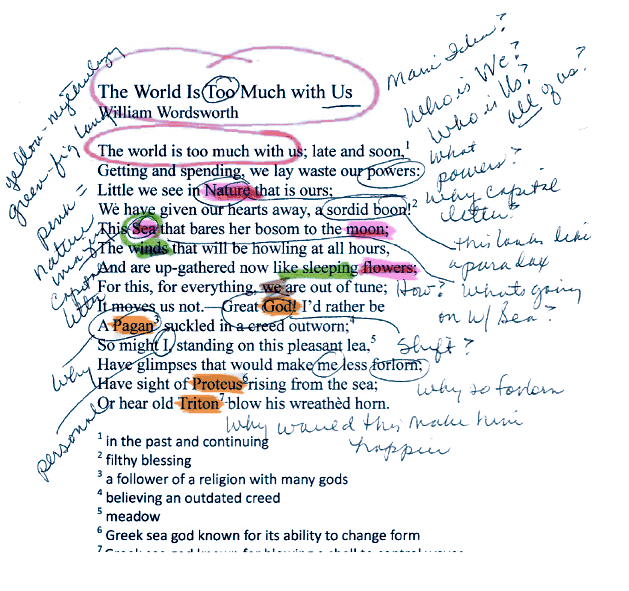 The World Is Too Much with Us
William Wordsworth
The world is too much with us; late and soon,¹
Getting and spending, we lay waste our powers:
Little we see in Nature that is ours;
We have given our hearts away, a sordid boon!²
This Sea that bares her bosom to the moon;
The winds that will be howling at all hours,
And are up-gathered now like sleeping flowers;
For this, for everything, we are out of tune;
It moves us not.—Great God! I'd rather be
A Pagan³ suckled in a creed outworn;⁴
So might I, standing on this pleasant lea,⁵
Have glimpses that would make me less forlorn;
Have sight of Proteus⁶ rising from the sea;
Or hear old Triton⁷ blow his wreathèd horn.
¹ in the past and continuing
² filthy blessing
³ a follower of a religion with many gods
⁴ believing an outdated creed
⁵ meadow
⁶ Greek sea god known for its ability to change form
yellow-mythology
green-fig lang
pink =
nature
capital
letter
Why
personal
Main Idea?
Who is We?
Who is Us?
all of us?
What
powers?
Why capital
letter?
this looks like
a paradox
How? What's going
on w/ Sea?
Shift?
Why so forlorn
Why would this make him
happier